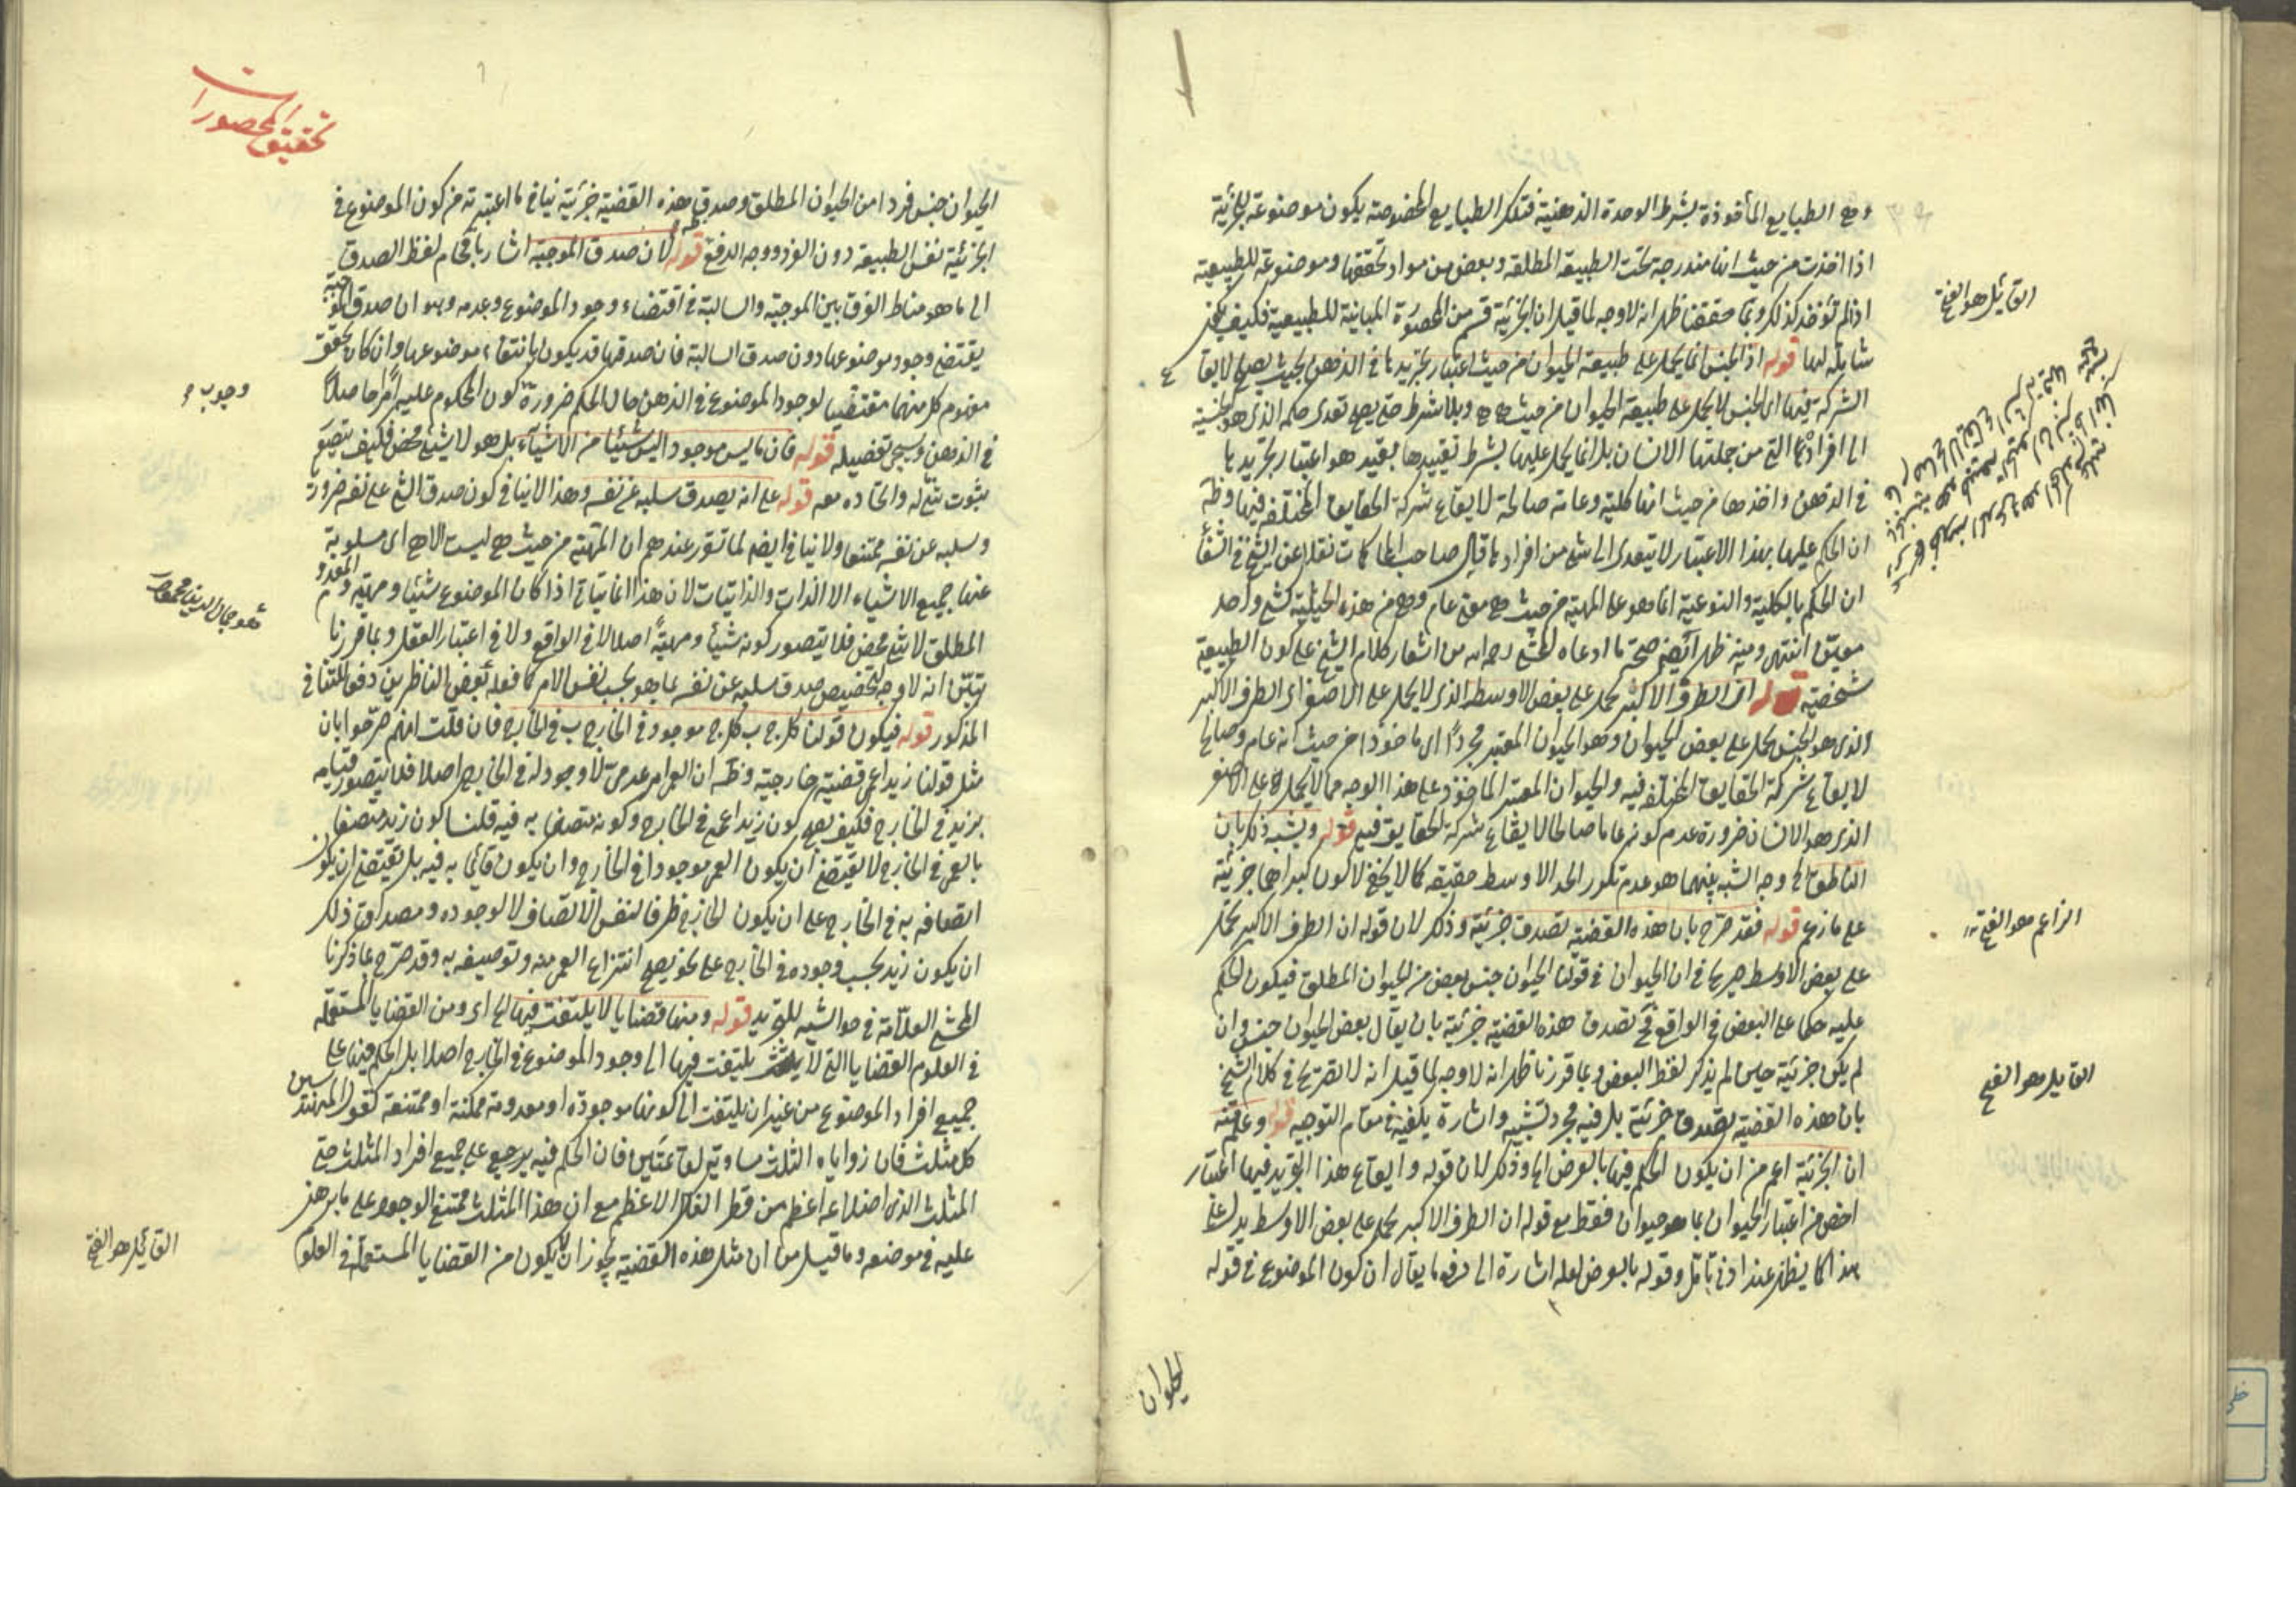 وهي الطبايع المأخوذة بشرط الوحدة الذهنية فتلك الطبايع المخصوصة يكون موضوعة للجزئية
اذا اخذت من حيث انها مندرجة تحت الطبيعة المطلقة وبعض من مواد تحققها وموضوعة للطبيعية
اذا لم تؤخذ كذلك وبما حققنا ظهر انه لا وجه لما قيل ان الجزئية قسم من المحصورة المباينة للطبيعية فكيف
شاملة لها قوله اذ الجنس انما يحمل على طبيعة الحيوان من حيث اعتبار تجريدها في الذهن بحيث يصلح لايقاع
الشركة فيها اى الجنس لا يحمل على طبيعة الحيوان من حيث هي هي وبلا شرط حتى يصح تعدى حكمه الذى هو الجنسية
الى افرادها التى من جملتها الانسان بل انما يحمل عليها بشرط تقييدها بقيد هو اعتبار تجريدها
فى الذهن واخذها من حيث انها كلية وعامة صالحة لايقاع شركة الحقايق المختلفة فيها وظ
ان الحكم عليها بهذا الاعتبار لا يتعدى الى شئ من افرادها قال صاحب المحاكمات نقلا عن الشيخ فى الشفا
ان الحكم بالكلية والنوعية انما هو على المهية من حيث هي معنى عام وهي من هذه الحيثية كشئ واحد
معين انتهى ومنه ظهر ايضا صحة ما ادعاه المحشى رحمه الله من اشعار كلام الشيخ على كون الطبيعية
شخصية قوله ان الطرف الاكبر يحمل على بعض الاوسط الذى لا يحمل على الاصغر اى الطرف الاكبر
الذى هو الجنس يحمل على بعض الحيوان وهو الحيوان المعتبر مجردا اى ماخوذا من حيث انه عام وصالح
لايقاع شركة الحقايق المختلفة فيه والحيوان المعتبر الماخوذ على هذا الوجه مما لا يحمل على الاصغر
الذى هو الانسان ضرورة عدم كونه عاما صالحا لايقاع شركة الحقايق فيه قوله ويشبه ذلك بان
الناطق الخ وجه الشبه بينهما هو عدم تكرر الحد الاوسط حقيقة كما لا يخفى لا كون كبراهما جزئية
على ما زعم قوله فقد صرح بان هذه القضية تصدق جزئية وذلك لان قوله ان الطرف الاكبر يحمل
على بعض الاوسط صريح فى ان الحيوان فى قولنا الحيوان جنس بعض من الحيوان المطلق فيكون الحكم
عليه حكما على البعض فى الواقع فح تصدق هذه القضية جزئية بان يقال بعض الحيوان جنس وان
لم يكن جزئية حين لم يذكر لفظ البعض وبما قررنا ظهر انه لا وجه لما قيل انه لا تصريح فى كلام الشيخ
بان هذه القضية تصدق جزئية بل فيه مجرد تشبيه واشارة يكفيه فى مقام التوجيه قوله وعلمته
ان الجزئية اعم من ان يكون الحكم فيها بالعرض الخ وذلك لان قوله وايقاع هذا التجريد فيها اعتبار
اخص من اعتبار الحيوان بما هو حيوان فقط مع قوله ان الطرف الاكبر يحمل على بعض الاوسط يدل على
هذا كما يظهر عند ادنى تأمل وقوله بالعرض لعله اشارة الى دفع ما يقال ان كون الموضوع فى قوله
الحيوان
القائل هو الفتح
الزاعم هو الفتح
القايل هو الفتح
تحقيق المحصورات
الحيوان جنس فردا من الحيوان المطلق وصدق هذه القضية جزئية ينافى ما اعتبرته من كون الموضوع فى
الجزئية نفس الطبيعة دون الفرد ووجه الدفع قوله لان صدق الموجبة اشار باقحام لفظ الصدق
الى ما هو مناط الفرق بين الموجبة والسالبة فى اقتضاء وجود الموضوع وعدمه وهو ان صدق الموجبة
يقتضى وجود موضوعها دون صدق السالبة فان صدقها قد يكون بانتفاء موضوعها وان كان تحقق
مفهوم كل منهما مقتضيا لوجود الموضوع فى الذهن حال الحكم ضرورة كون المحكوم عليه امرا حاصلا
فى الذهن وسيجئ تفصيله قوله فان ما ليس موجودا ليس شيئا من الاشياء بل هو لا شئ محض فكيف يتصور
ثبوت شئ له واتحاده معه قوله على انه يصدق سلبه عن نفسه وهذا لا ينافى كون صدق الشئ على نفسه ضرورة
وسلبه عن نفسه ممتنعا ولا ينافى ايضا لما تقرر عندهم ان المهية من حيث هي ليست الا هي اى مسلوبة
عنها جميع الاشياء الا الذات والذاتيات لان هذا انما يتأتى اذا كان الموضوع شيئا ومهية والمعدوم
المطلق لا شئ محض فلا يتصور كونه شيئا ومهية اصلا لا فى الواقع ولا فى اعتبار العقل وبما قررنا
تبين انه لا وجه لتخصيص صدق سلبه عن نفسه بما هو بحسب نفس الامر كما فعله بعض الناظرين دفعا للتنافى
المذكور قوله فيكون قولنا كل ج ب كل ج موجود فى الخارج ب فى الخارج فان قلت انهم صرحوا بان
مثل قولنا زيد اعمى قضية خارجية وظ ان العمى امر عدمى لا وجود له فى الخارج اصلا فلا يتصور قيامه
بزيد فى الخارج فكيف يصح كون زيد اعمى فى الخارج وكونه متصفا به فيه قلنا كون زيد متصفا
بالعمى فى الخارج لا يقتضى ان يكون العمى موجودا فى الخارج وان يكون قائما به فيه بل يقتضى ان يكون
اتصافه به فى الخارج على ان يكون الخارج ظرفا لنفس الاتصاف لا لوجوده ومصداق ذلك
ان يكون زيد بحسب وجوده فى الخارج على نحو يصح انتزاع العمى منه وتوصيفه به وقد صرح بما ذكرنا
المحشى العلامة فى حواشيه للتجريد قوله ومنها قضايا لا يلتفت فيها الخ اى ومن القضايا المستعملة
فى العلوم القضايا التى لا يلتفت فيها الى وجود الموضوع فى الخارج اصلا بل الحكم فيها على
جميع افراد الموضوع من غير ان يلتفت الى كونها موجودة او معدومة ممكنة او ممتنعة كقول المهندسين
كل مثلث فان زواياه الثلث مساوية لقائمتين فان الحكم فيه يرجع على جميع افراد المثلث حتى
المثلث الذى اضلاعه اعظم من قطر الفلك الاعظم مع ان هذا المثلث ممتنع الوجود على ما برهن
عليه فى موضعه وما قيل من ان مثل هذه القضية يجوز ان لا يكون من القضايا المستعملة فى العلوم
وجوب
هو جمال الدين محمود
القائل هو الفتح